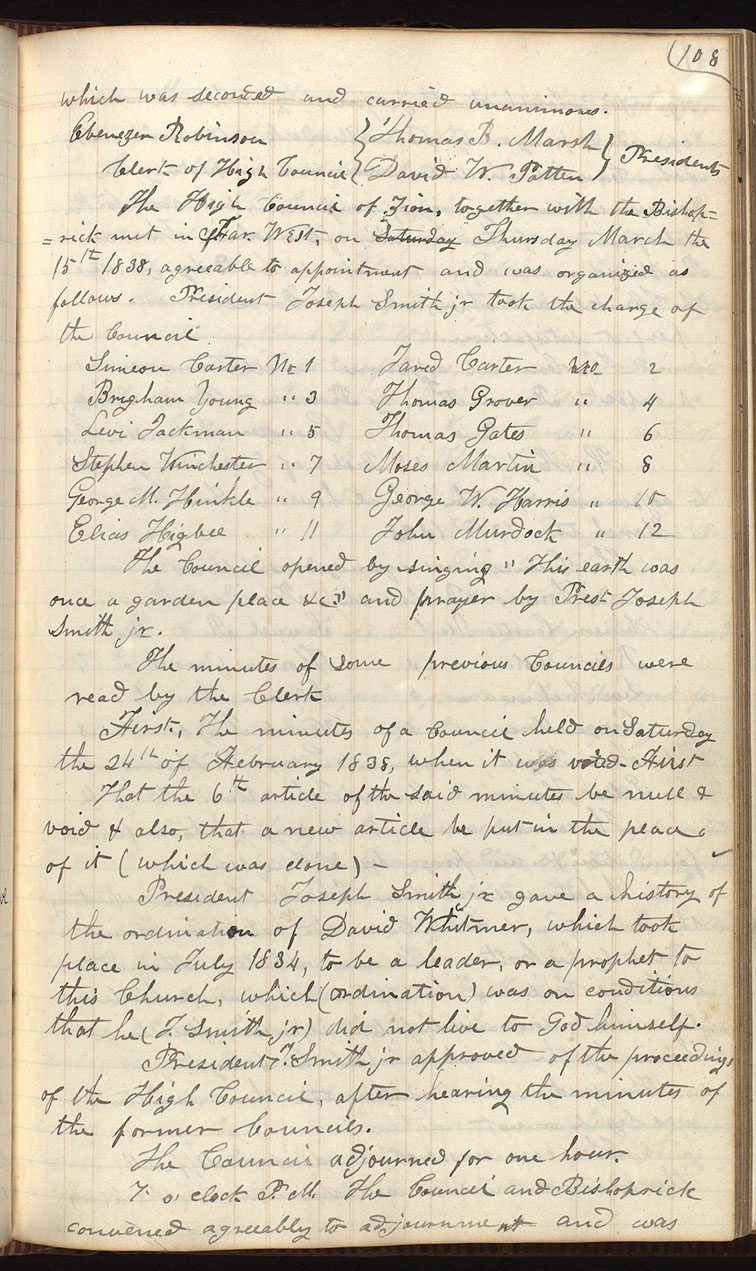 108
which was seconded and carried unanimous.
Ebenezer Robinson } Thomas B. Marsh } Presidents
Clerk of High Council } David W. Patten
The High Council of Zion, together with the Bishop=
=rick met in Far West, on Saturday Thursday March the
15th 1838, agreeable to appointment and was organized as
follows. President Joseph Smith jr took the charge of
the Council
Simeon Carter No 1 Jared Carter No 2
Brigham Young " 3 Thomas Grover " 4
Levi Jackman " 5 Thomas Gates " 6
Stephen Winchester " 7 Moses Martin " 8
George M. Hinkle " 9 George W. Harris " 10
Elias Higbee " 11 John Murdock " 12
The Council opened by singing "This earth was
once a garden place &c." and prayer by Prest Joseph
Smith jr.
The minutes of some previous Councils were
read by the Clerk
First, The minutes of a Council held on Saturday
the 24th of February 1838, when it was voted First
That the 6th article of the said minutes be null &
void & also, that a new article be put in the place
of it (which was done) –
President Joseph Smith jr gave a history of
the ordination of David Whitmer, which took
place in July 1834, to be a leader, or a prophet to
this Church, which (ordination) was on conditions
that he (J. Smith jr) did not live to God himself.
President J. Smith jr approved of the proceedings
of the High Council, after hearing the minutes of
the former Councils.
The Council adjourned for one hour.
7 o, clock P.M. The Council and Bishoprick
convened agreeably to adjournment and was